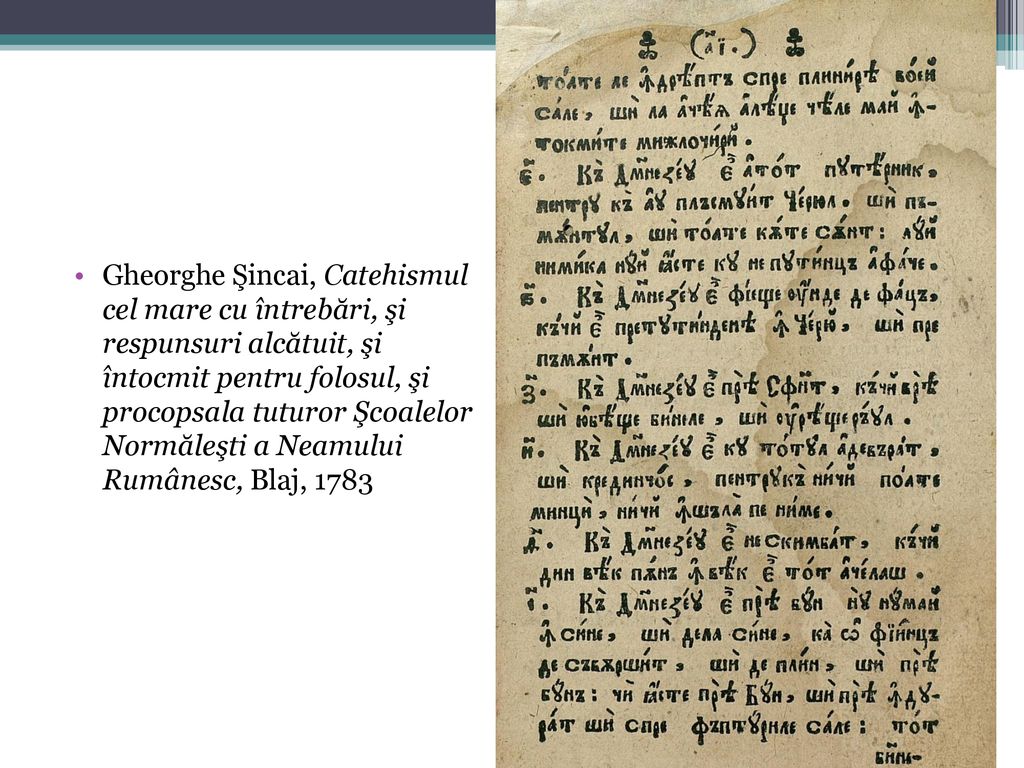 • Gheorghe Şincai, Catehismul
cel mare cu întrebări, şi
respunsuri alcătuit, şi
întocmit pentru folosul, şi
procopsala tuturor Şcoalelor
Normăleşti a Neamului
Rumânesc, Blaj, 1783
(а҃і.)
то́ате ле ꙟ҆дрѣ́птъ спре плини́рѣ во́ей
са́ле, шѝ ла а҆чѣ́ѧ а҆лѣ́ӂе чѣ́ле май ꙟ҆-
токми́те мижлочи́рй.
є҃. Къ̀ Дм҃незе́ꙋ є҆́ а҆то́т пꙋтѣ́рник,
пентрꙋ къ а҆ꙋ плъсмꙋи́т Че́рюл. шѝ пъ-
мѫ́нтꙋл, шѝ то́ате кѫ́те сѫ́нт: лꙋ́й
ними́ка нꙋ́й ꙗ҆́сте кꙋ непꙋти́нцъ а҆фа́че.
ѕ҃. Къ̀ Дм҃незе́ꙋ є҆́ фі́еще ᲂу҆́нде де фа́цъ,
къ́чй є҆́ претꙋти́нденѣ ꙟ҆ Че́рю, шѝ пре
пъмѫ́нт.
з҃. Къ̀ Дм҃незе́ꙋ є҆́ прѣ́ Сфн҃т, къ́чй врѣ́
шѝ ю҆бѣ́ще би́неле, шѝ ᲂу҆рѣ́ще рѫ́ꙋл.
и҃. Къ̀ Дм҃незе́ꙋ є҆́ кꙋ то́тꙋл а҆девъра́т,
шѝ крединчо́с, пентрꙋкъ ни́чй по́ате
минцѝ, ни́чй ꙟ҆шълà пе ни́ме.
Къ̀ Дм҃незе́ꙋ є҆́ нескимба́т, къ́чй
дин вѣ́к пѫ́нъ ꙟ҆ вѣ́к є҆́ то́т а҆че́лаш.
і҃. Къ̀ Дм҃незе́ꙋ є҆́ прѣ́ бꙋ́н нꙋ̀ нꙋ́май
ꙟ҆ си́не, шѝ дела си́не, кà ѡ҆ фіи́нцъ
де съвѫрши́т, шѝ де пли́н, шѝ прѣ́
бꙋ́нъ: чѝ ꙗ҆́сте прѣ́ Бꙋ́н, шѝ прѣ́ ꙟ҆дꙋ-
ра́т шѝ спре фъптꙋ́риле са́ле: то́т
би́не-